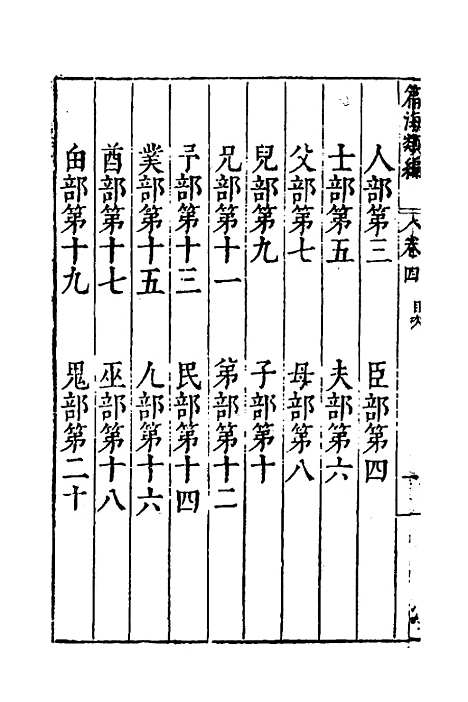 篇海類編 人 卷四 目次
人部第三 臣部第四
士部第五 夫部第六
父部第七 母部第八
兒部第九 子部第十
兄部第十一 弟部第十二
予部第十三 民部第十四
菐部第十五 儿部第十六
酋部第十七 巫部第十八
甶部第十九 鬼部第二十